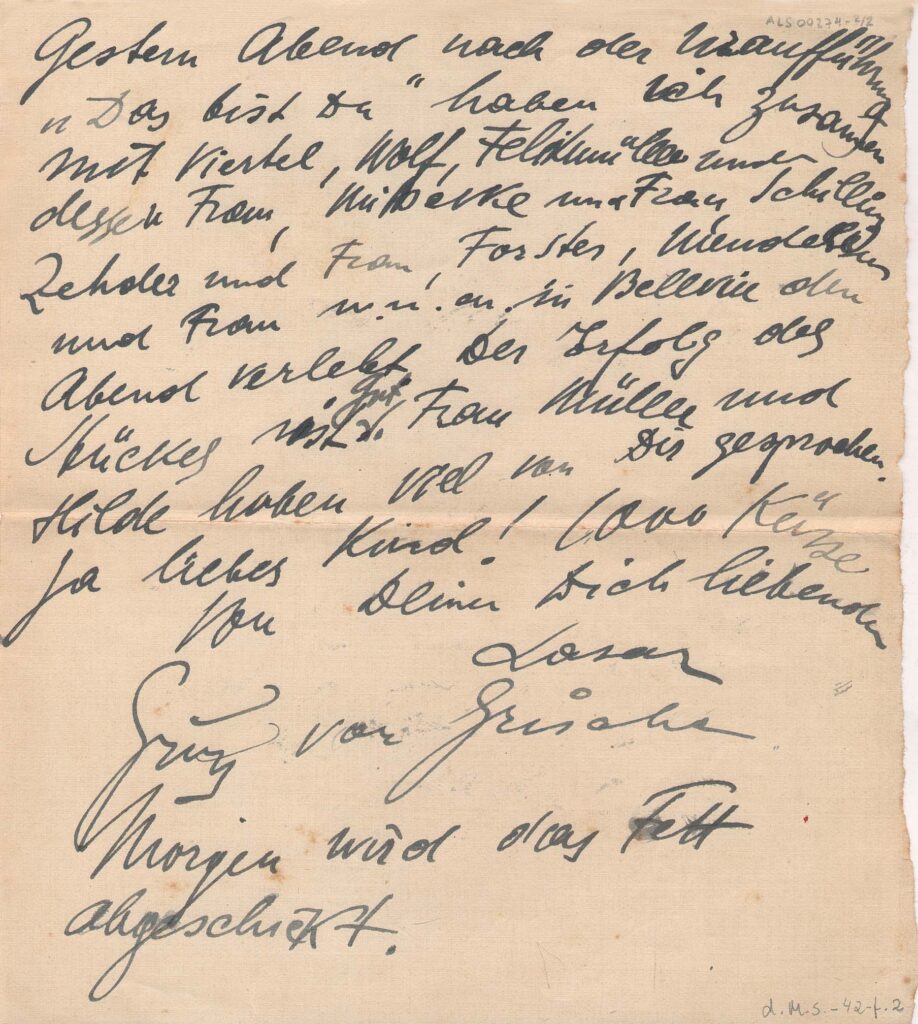 ALS 00274-2/2
Gestern Abend nach der Uraufführung
"Das bist Du" haben ich zusammen
mit Viertel, Wolf, Felixmüller und
dessen Frau, Mitzerke und Frau, Schilling
Zehder und Frau, Forster, Mendelsohn
und Frau u.n.an. in Bellvue den
Abend verlebt. Der Erfolg des
Stückes ist gut. Frau Müller und
Hilde haben viel von Dir gesprochen.
Ja liebes Kind! 1000 Küsse
von Deinen Dich liebenden
Lasar
Gruss von Grischa
Morgen wird das Fett
abgeschickt.
d. M. S. - 42 - f. 2